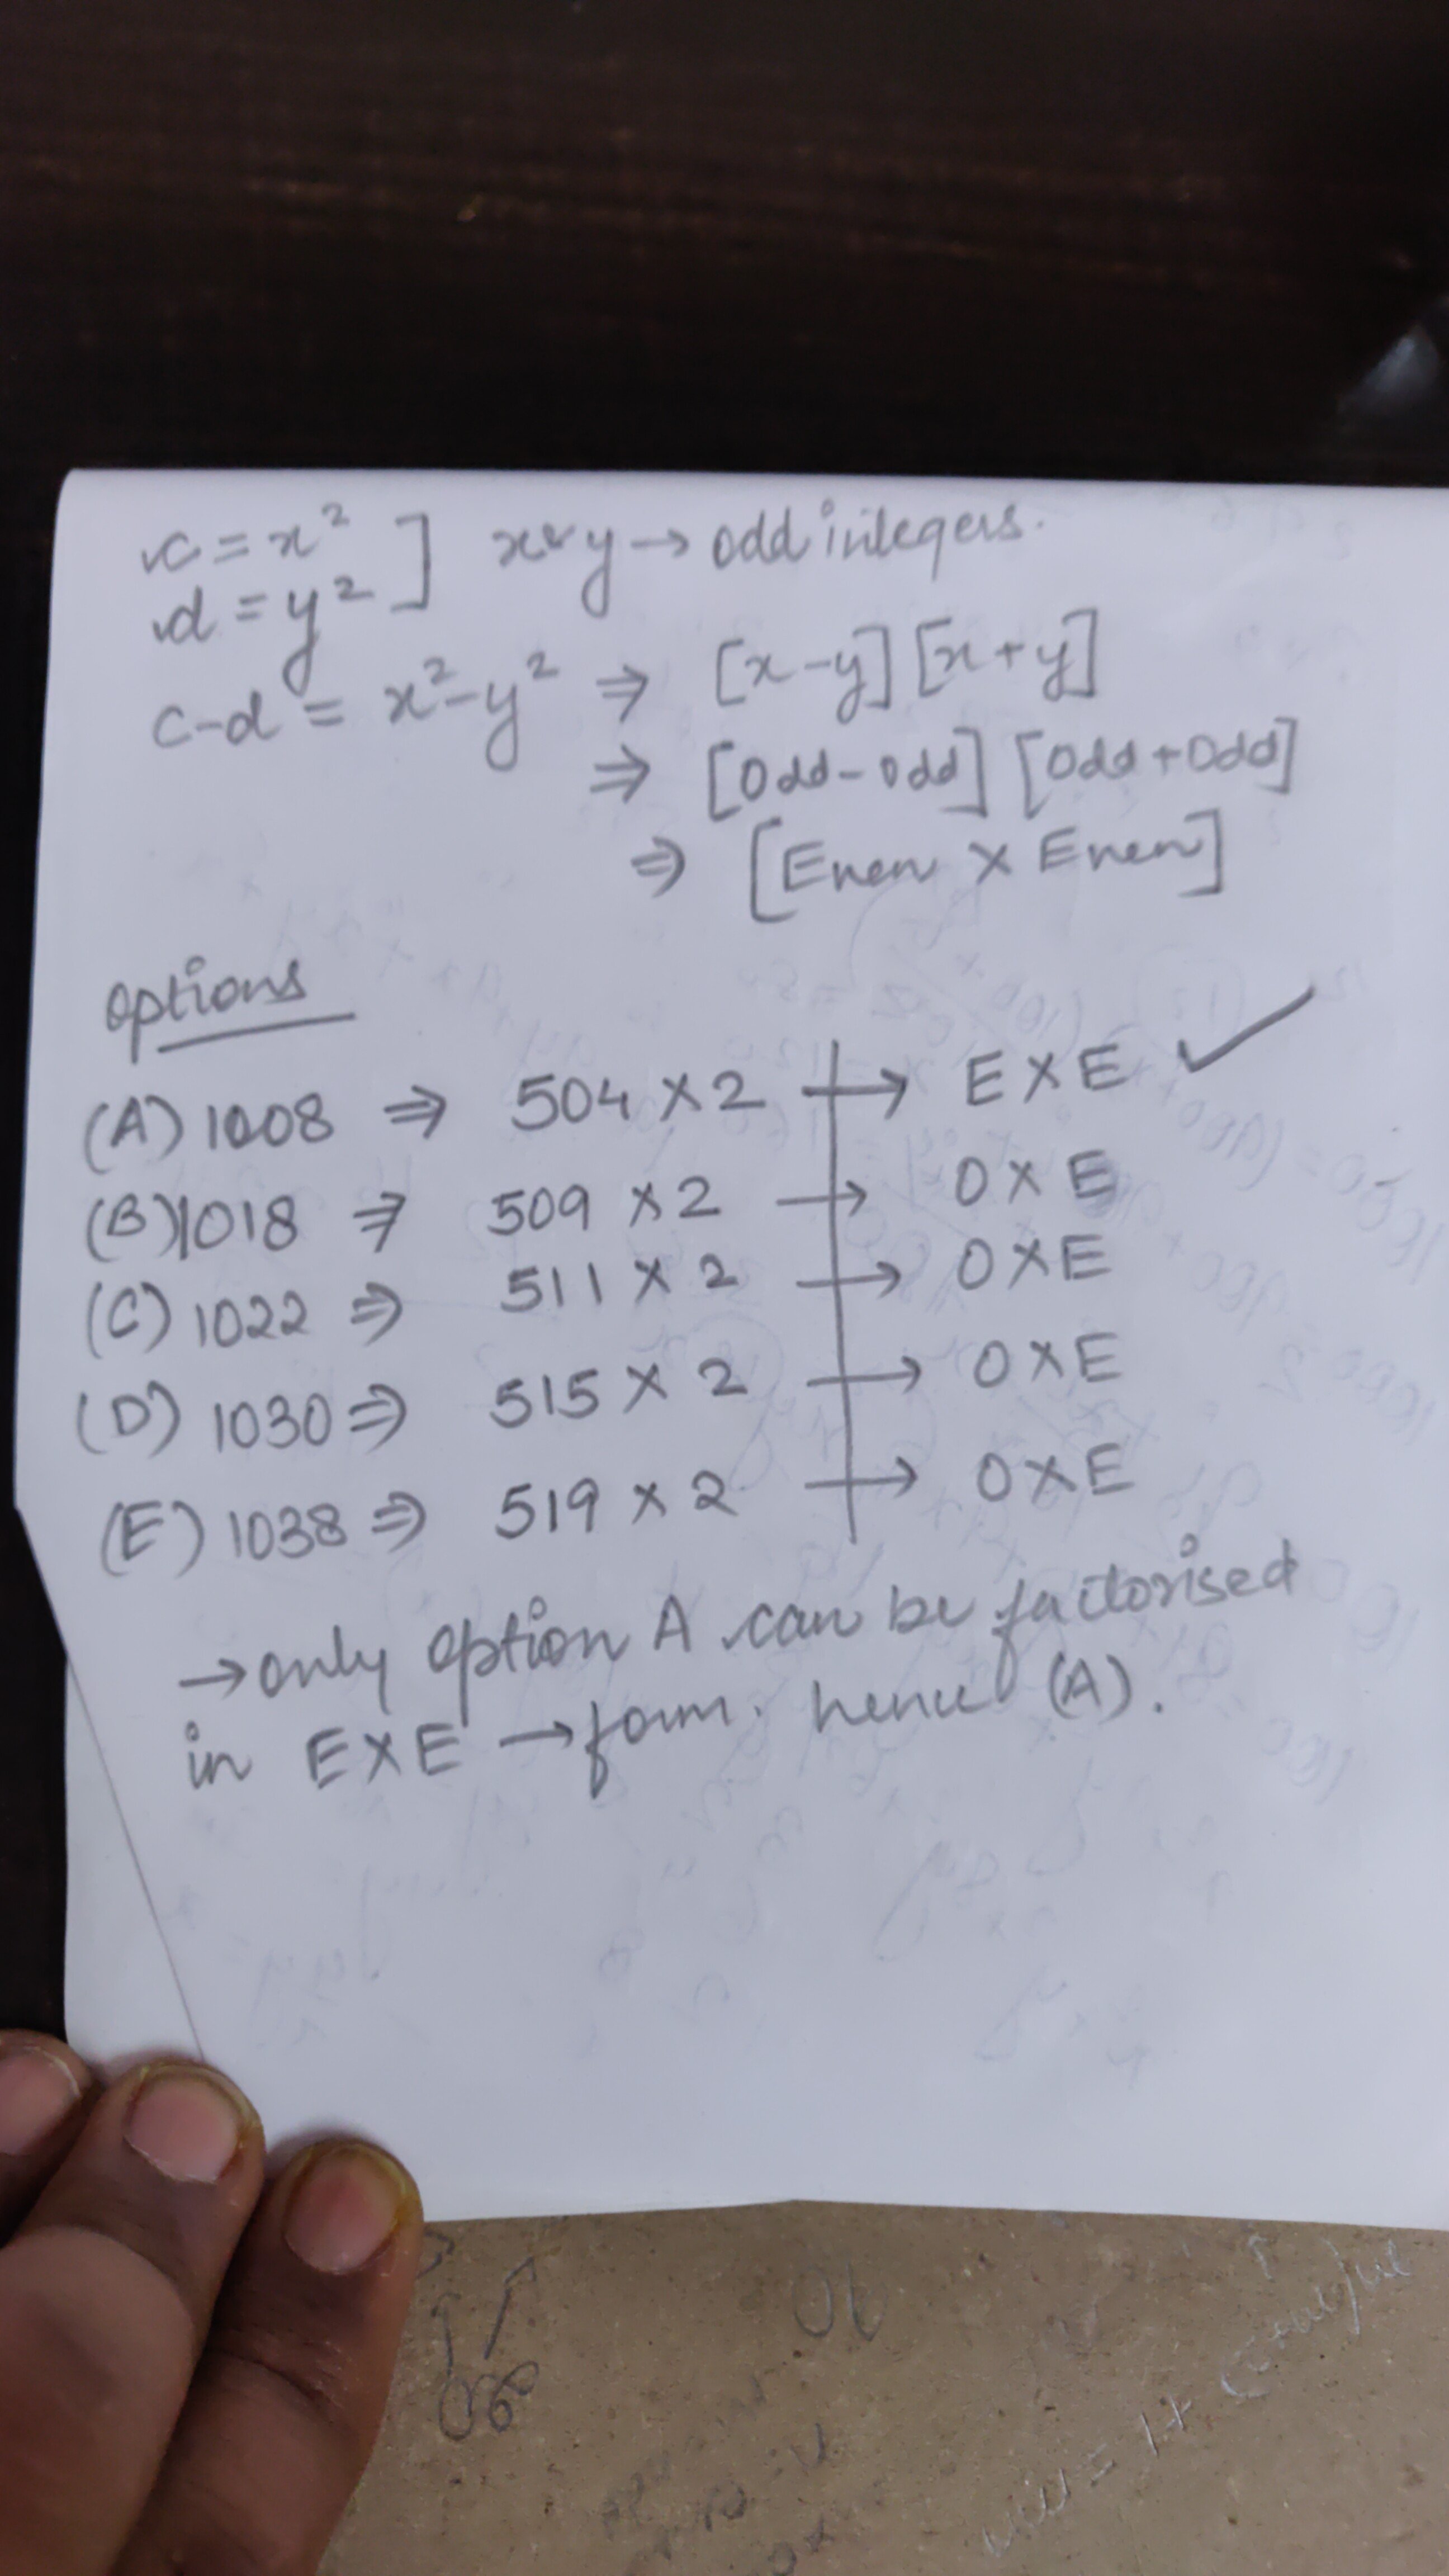 c = x² ] x & y → odd integers.
d = y²
c-d = x²-y² ⇒ [x-y][x+y]
⇒ [Odd-Odd] [Odd+Odd]
⇒ [Even × Even]
Options
(A) 1008 ⇒ 504 × 2 → E×E ✓
(B) 1018 ⇒ 509 × 2 → O×E
(C) 1022 ⇒ 511 × 2 → O×E
(D) 1030 ⇒ 515 × 2 → O×E
(E) 1038 ⇒ 519 × 2 → O×E
→ only option A can be factorised
in E×E → form. hence (A).